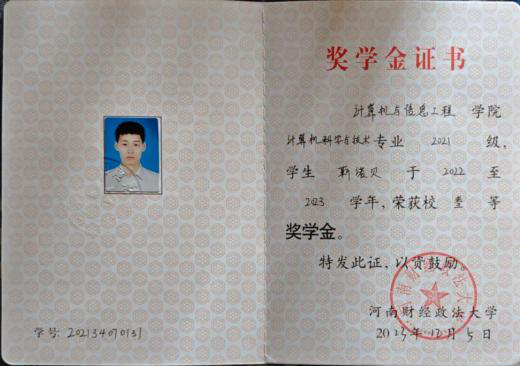 学号: 202134070131
奖学金证书
计算机与信息工程 学院
计算机科学与技术 专业 2021 级,
学生 靳诺贝 于 2022 至
2023 学年, 荣获校 叁 等
奖学金。
特发此证, 以资鼓励。
河南财经政法大学
2023年12月5日